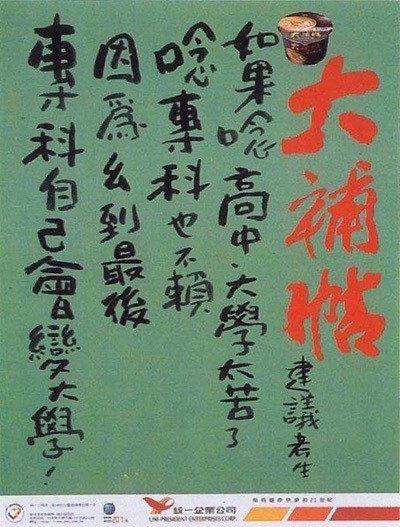 大補帖
建議考生
如果唸高中、大學太苦了
唸專科也不賴
因為幺到最後
專科自己會變大學！
健康快樂的21世紀
統一企業公司
UNI-PRESIDENT ENTERPRISES CORP.